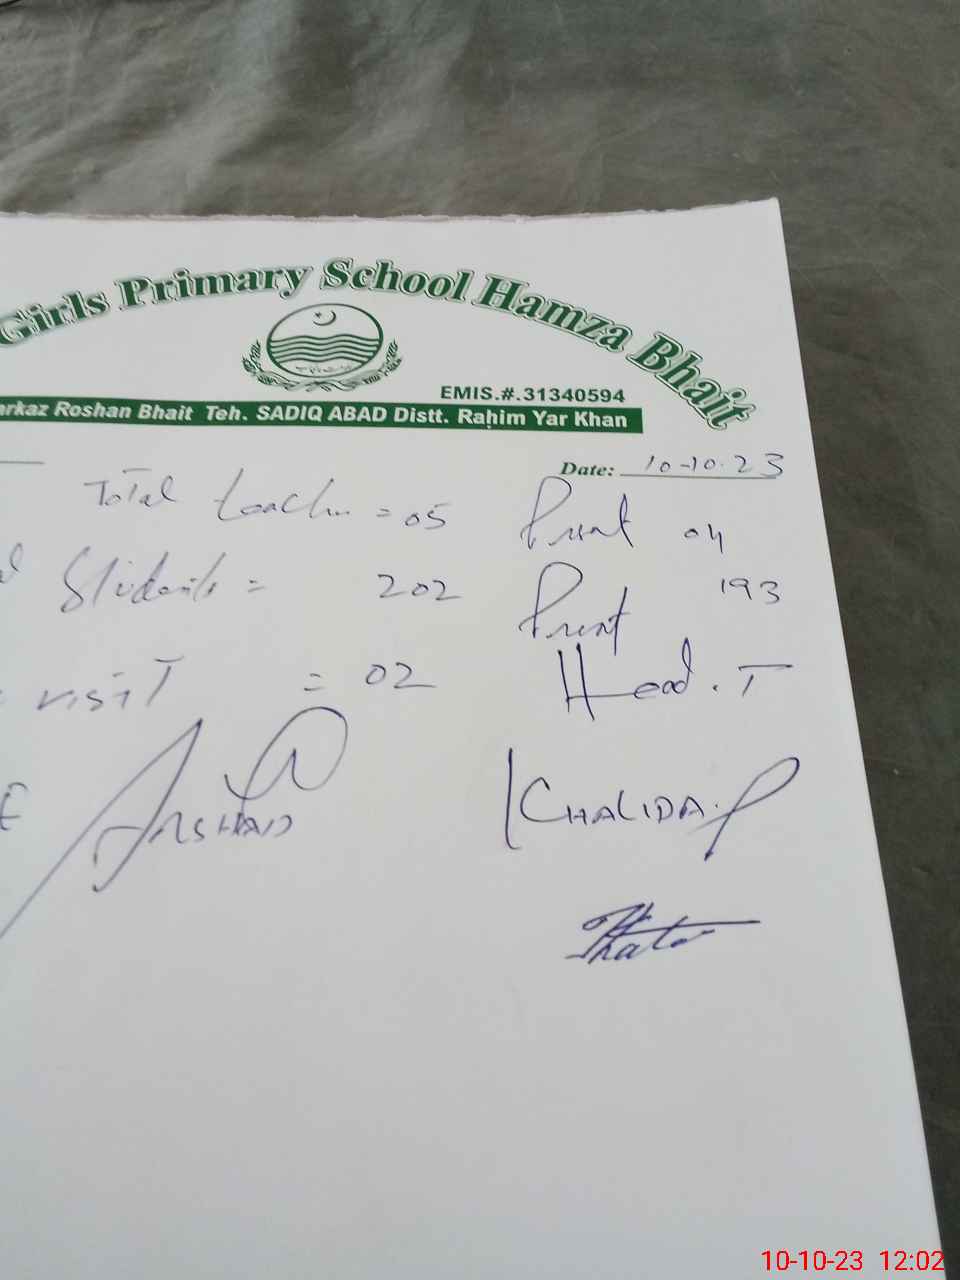 Girls Primary School Hamza Bhait
EMIS.#.31340594
arkaz Roshan Bhait Teh. SADIQ ABAD Distt. Rahim Yar Khan
Date: 10-10-23
Total teacher = 05 Present 04
Students = 202 Present 193
visit = 02 Head.T
ARSHAD KHALIDA.P
10-10-23 12:02